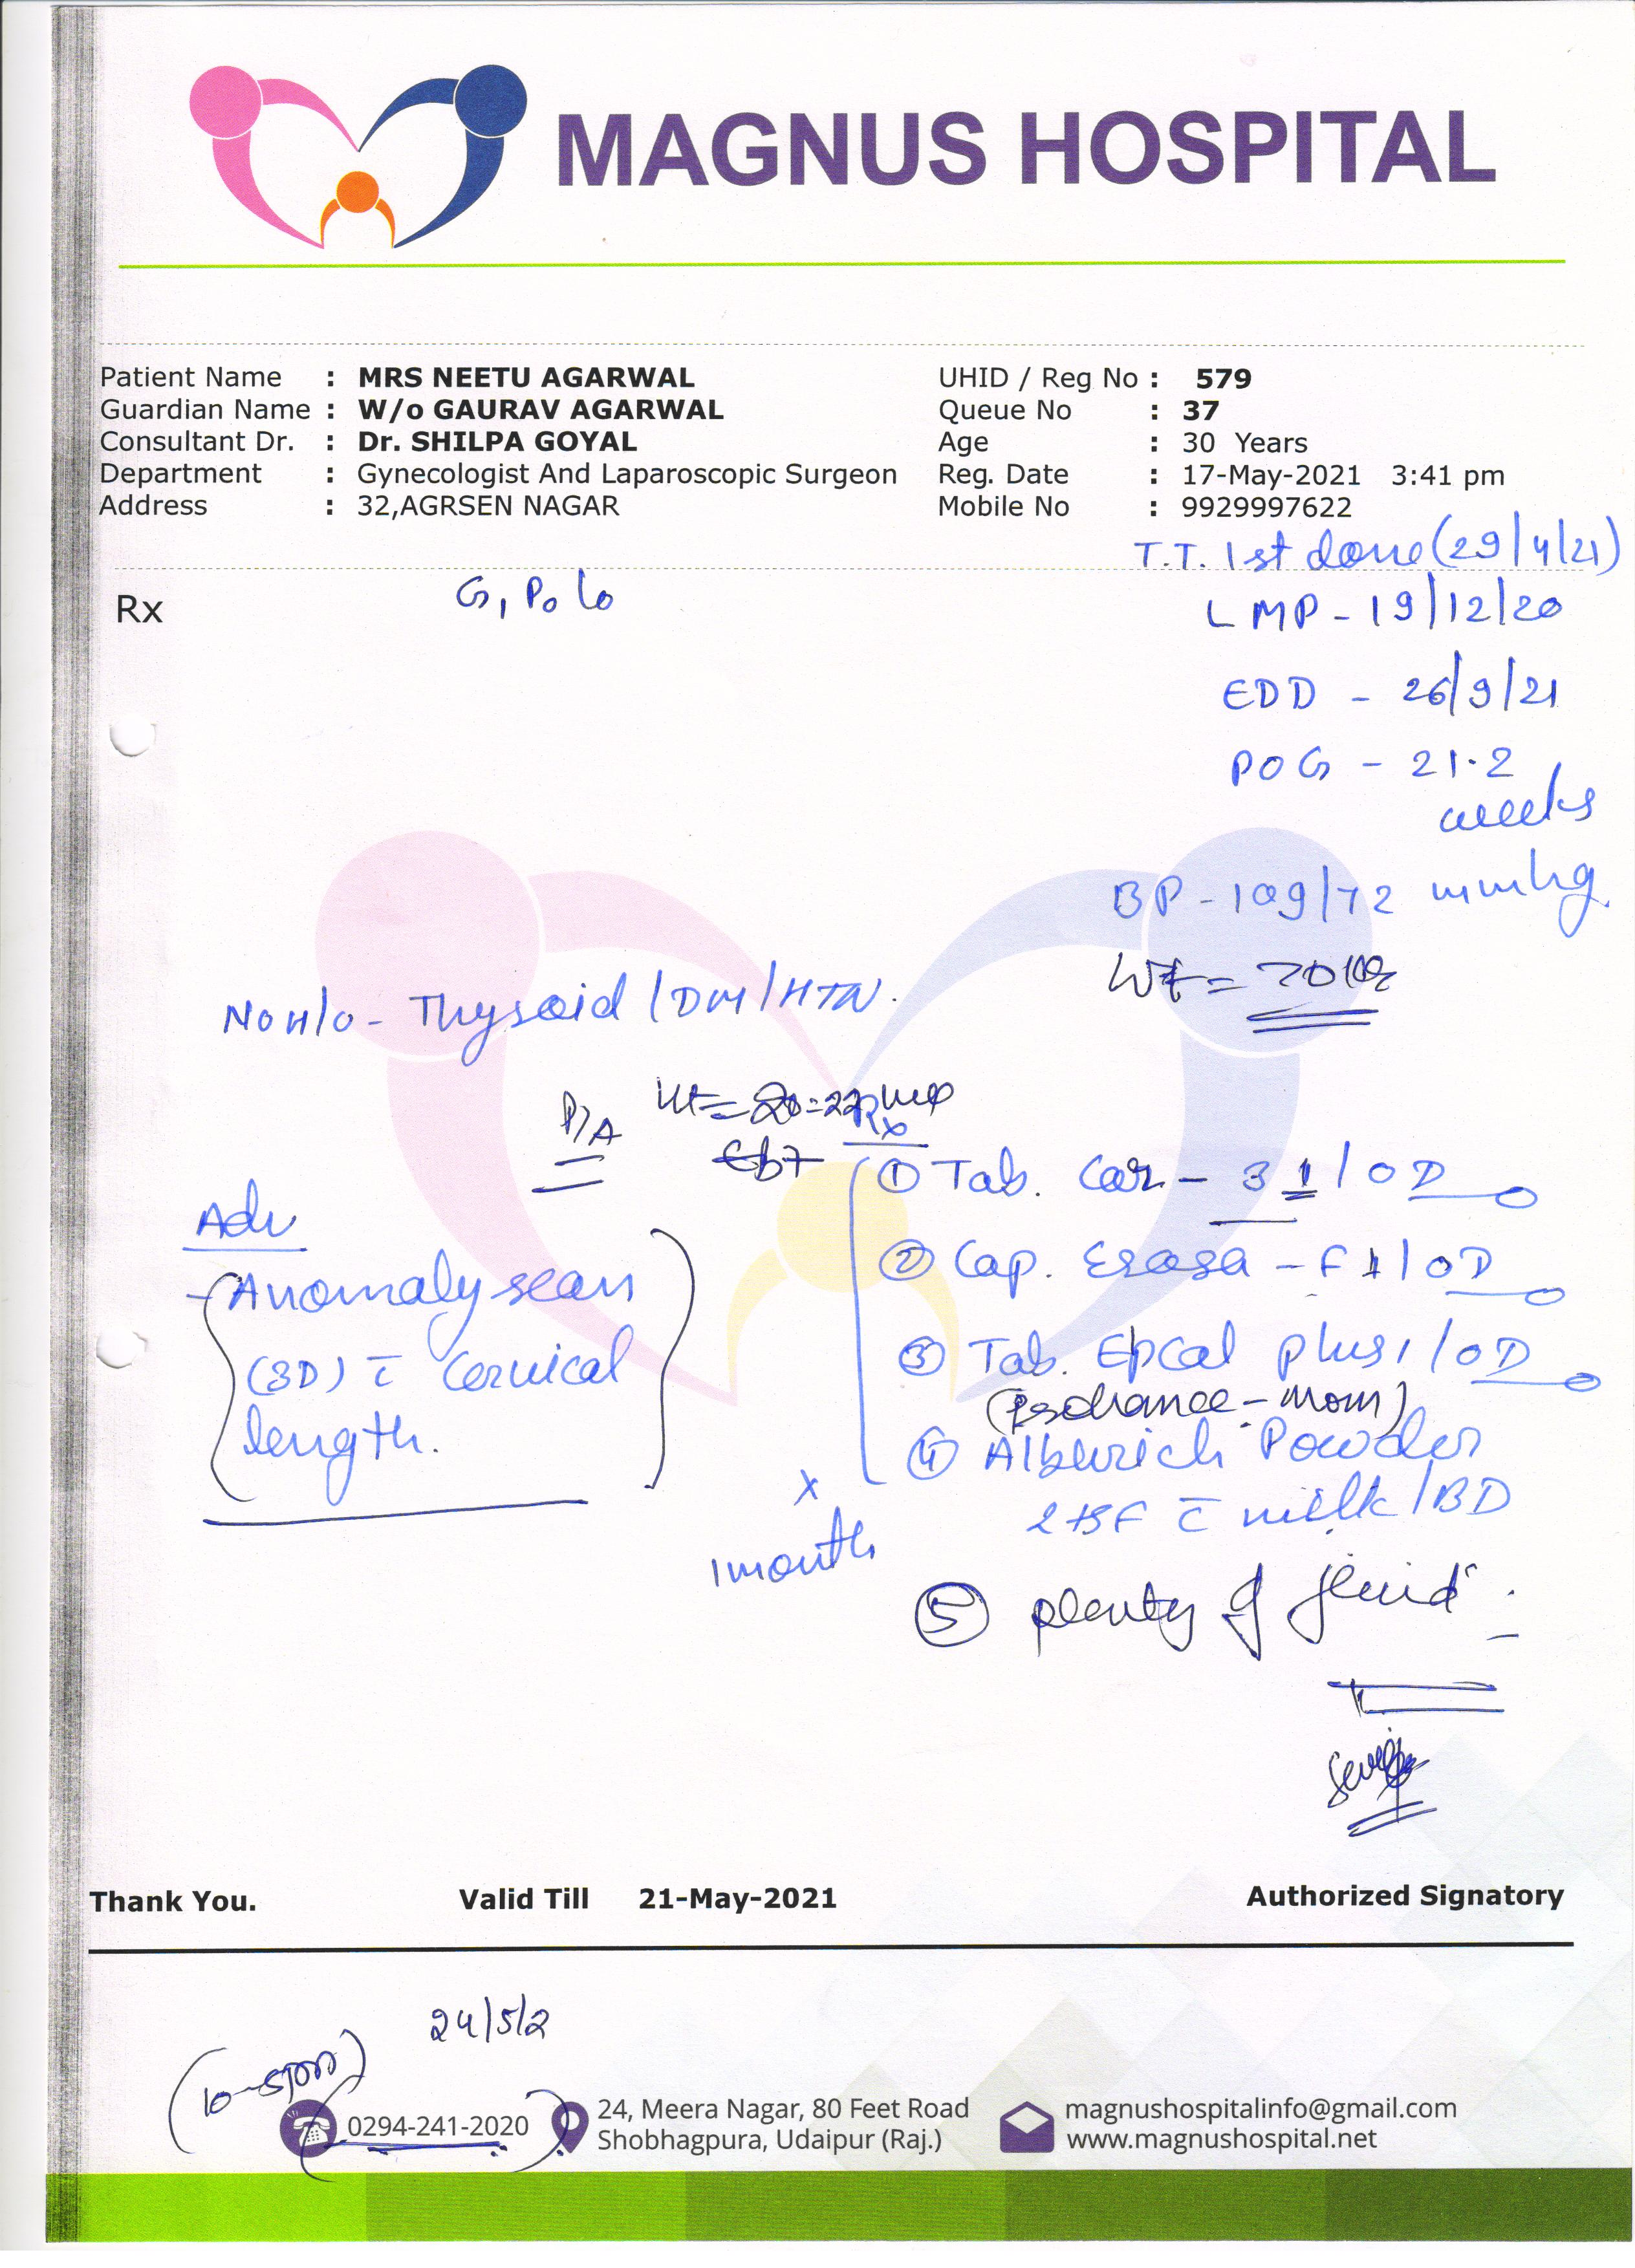 MAGNUS HOSPITAL
Patient Name : MRS NEETU AGARWAL
Guardian Name : W/o GAURAV AGARWAL
Consultant Dr. : Dr. SHILPA GOYAL
Department : Gynecologist And Laparoscopic Surgeon
Address : 32,AGRSEN NAGAR
UHID / Reg No : 579
Queue No : 37
Age : 30 Years
Reg. Date : 17-May-2021 3:41 pm
Mobile No : 9929997622
T.T. 1st done (29/4/21)
Rx
G1 P0 L0
LMP - 19/12/20
EDD - 26/9/21
POG - 21.2
weeks
BP - 109/72 mmhg
Wt = 70
No H/O - Thyroid / DM / HTN.
P/A
Ut = 20-22
Rx
Adv
- Anomaly scan
(3D) c̄ Cervical
length.
① Tab. Car - 31 / OD
② Cap. - F 1 / OD
③ Tab. Epcal plus 1 / OD
- Mom)
④ Powder
2 tsf c̄ milk / BD
x
1 month
⑤ plenty of fluid
Thank You.
Valid Till 21-May-2021
Authorized Signatory
24/5/2
0294-241-2020
24, Meera Nagar, 80 Feet Road
Shobhagpura, Udaipur (Raj.)
magnushospitalinfo@gmail.com
www.magnushospital.net